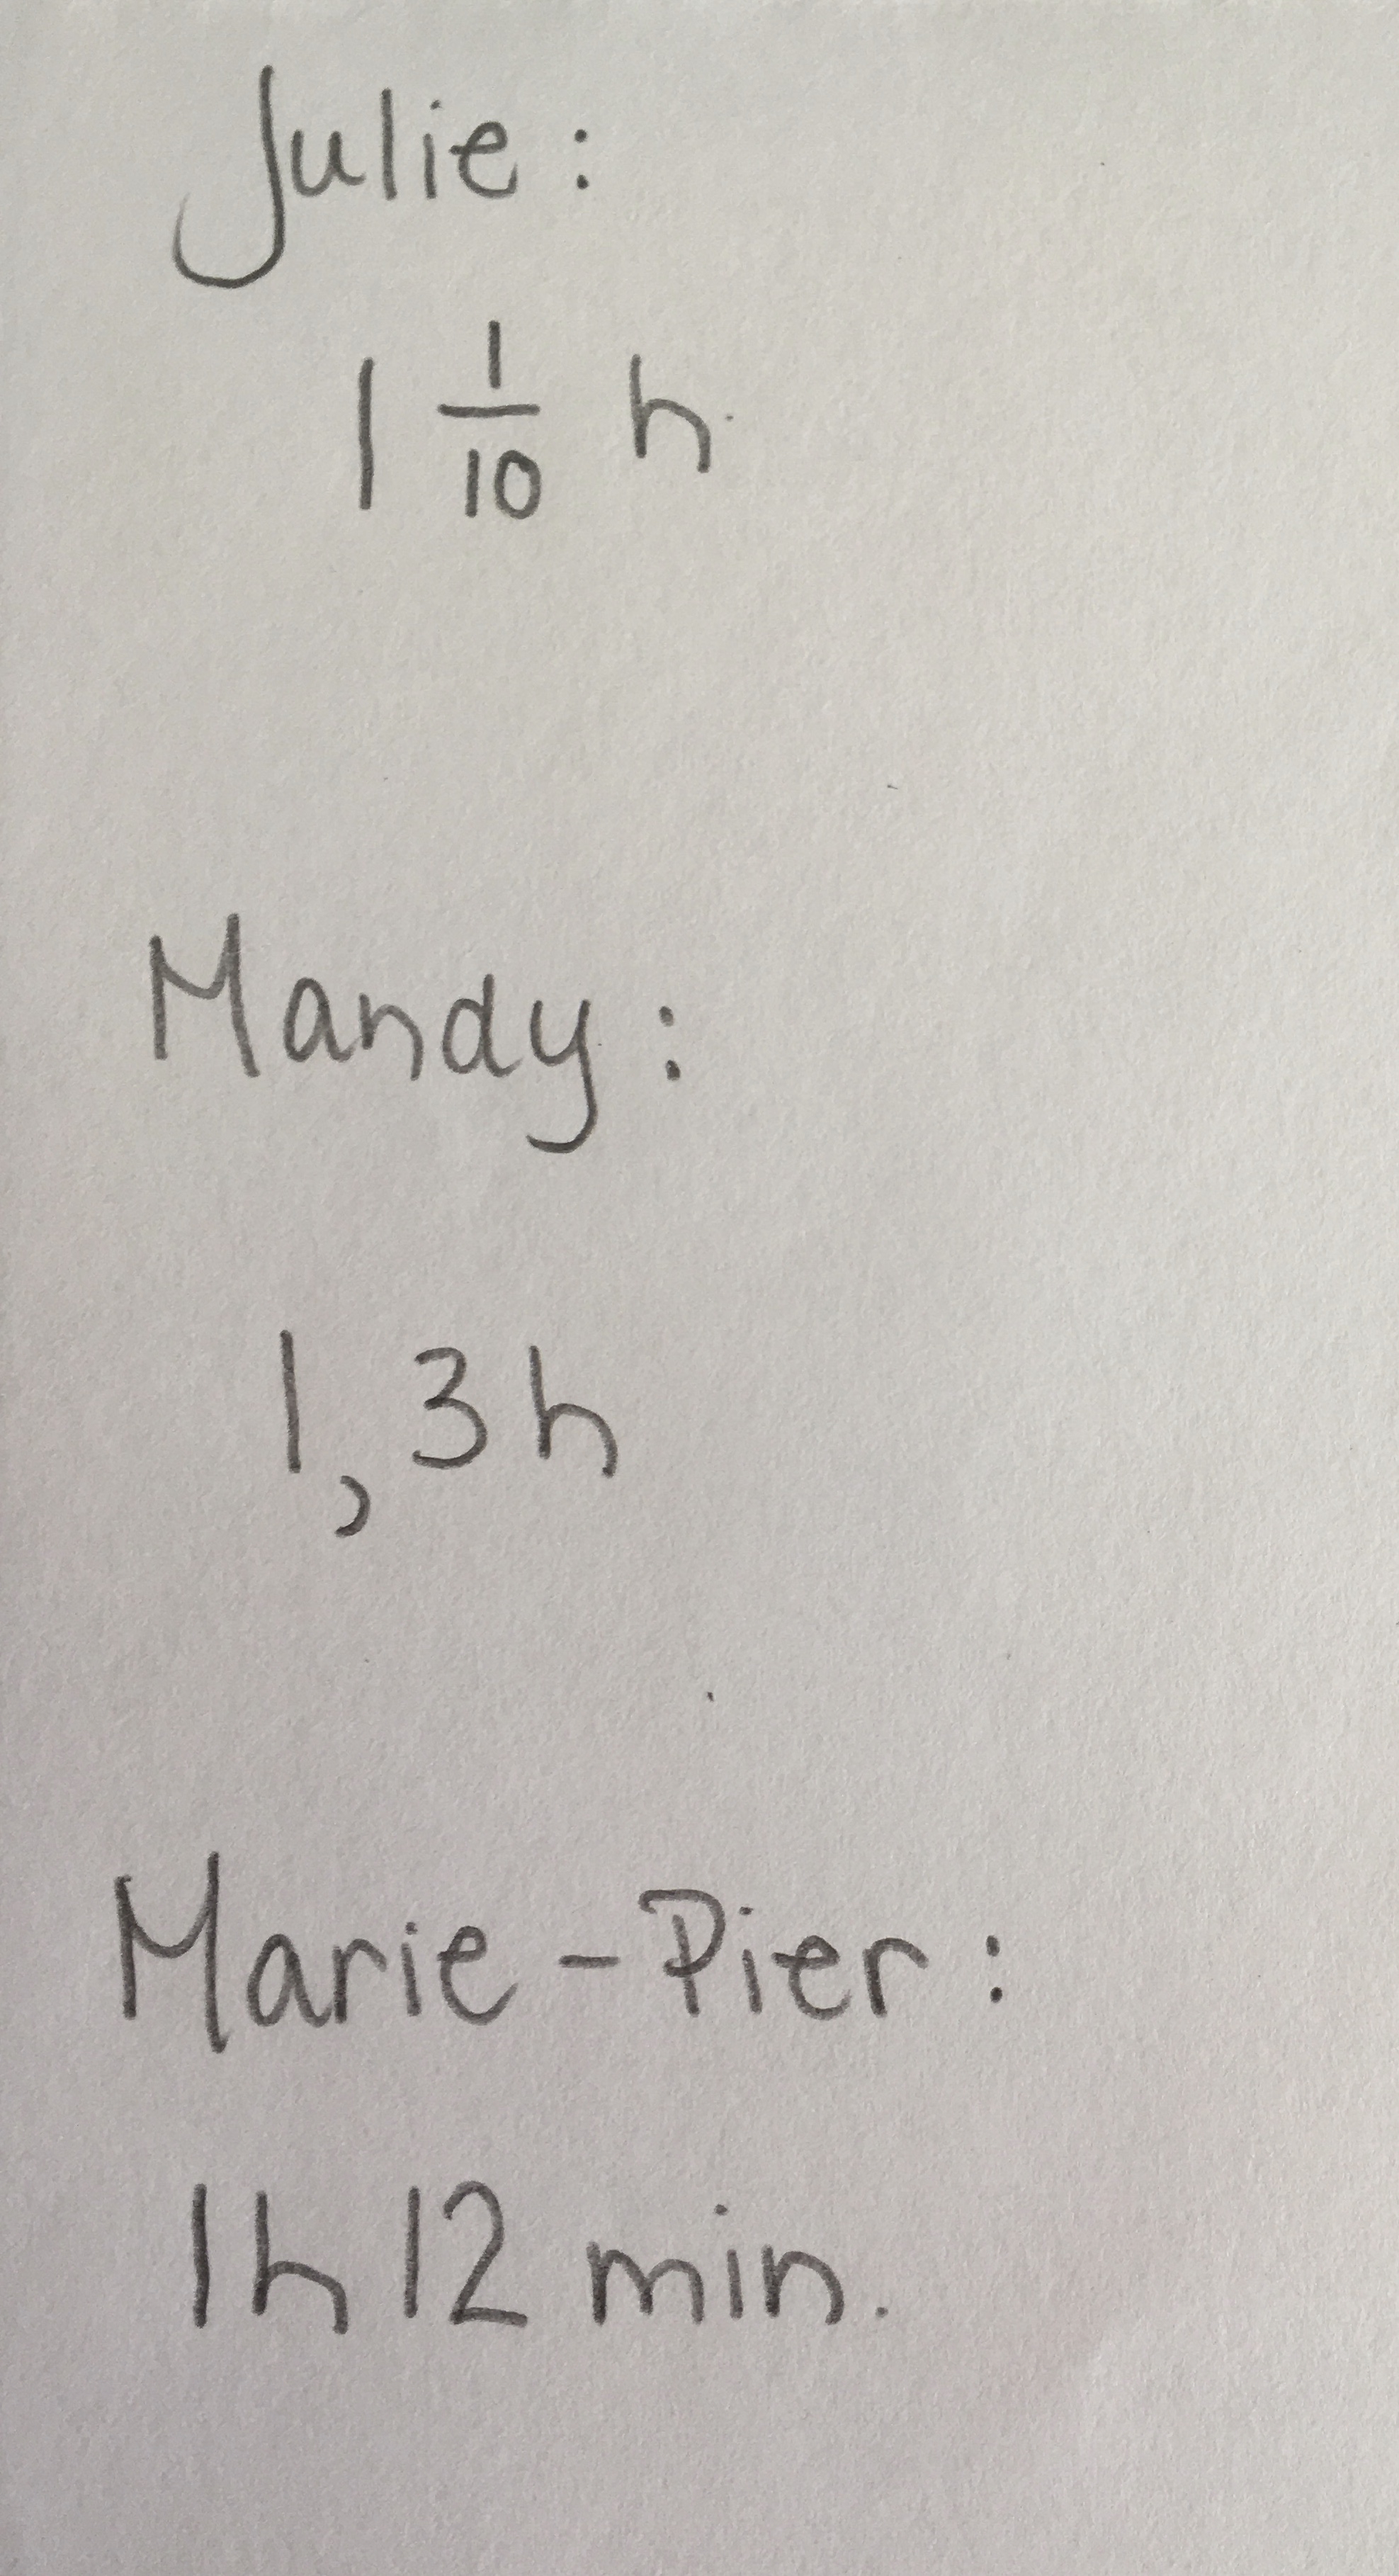 Julie :
1 1/10 h
Mandy :
1,3 h
Marie-Pier :
1h 12 min.